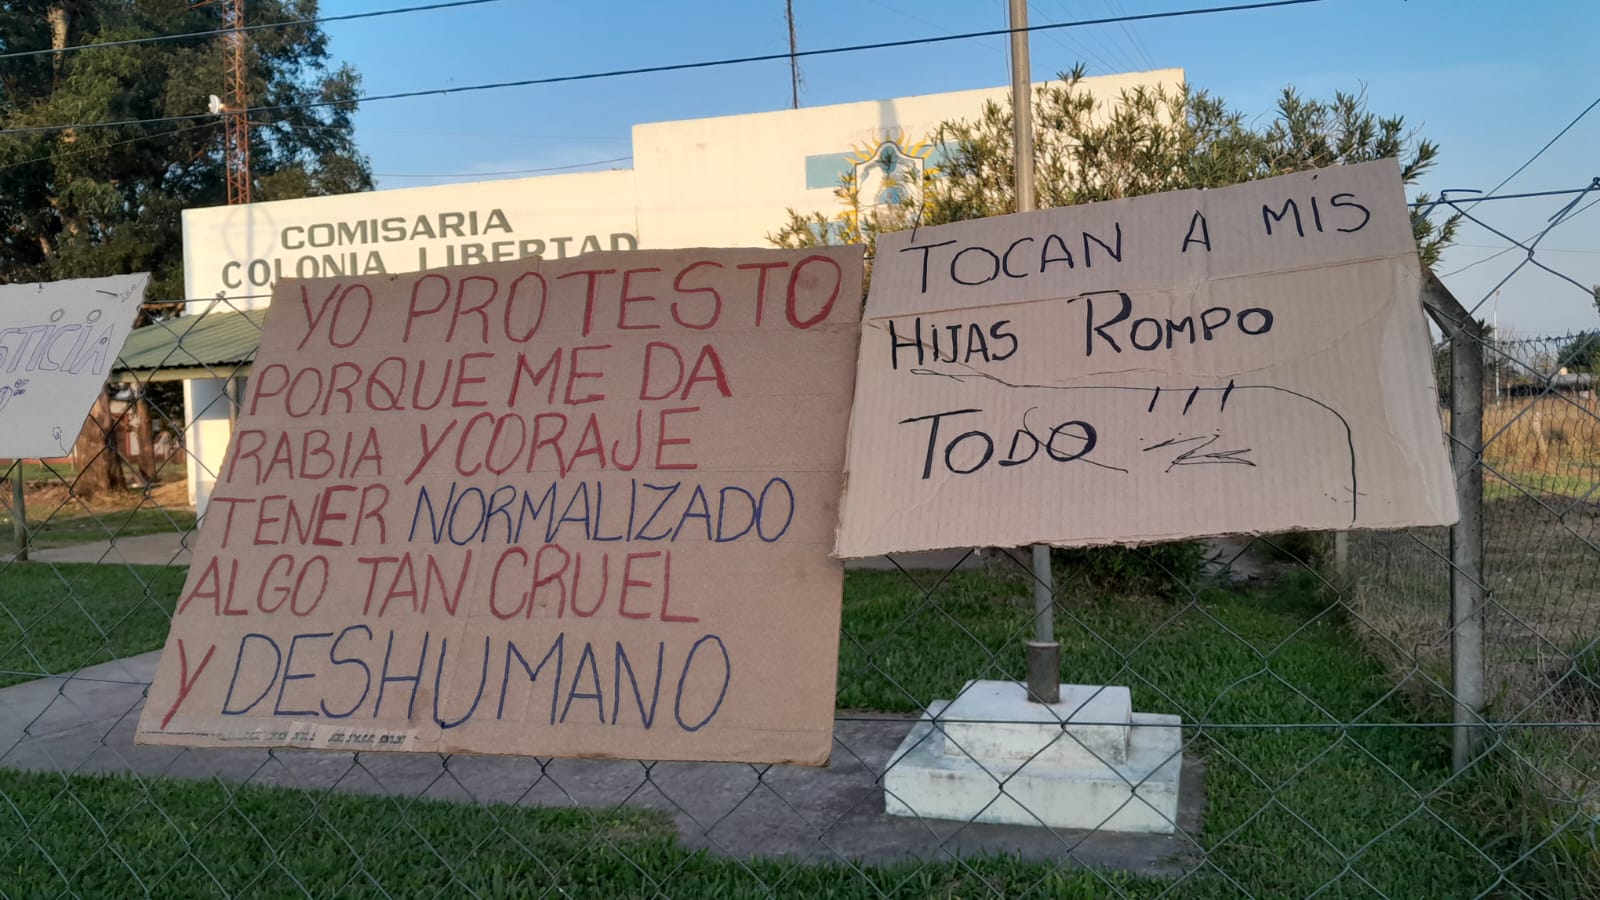 COMISARIA
COLONIA LIBERTAD
YO PROTESTO
PORQUE ME DA
RABIA Y CORAJE
TENER NORMALIZADO
ALGO TAN CRUEL
Y DESHUMANO
TOCAN A MIS
HIJAS ROMPO
TODO